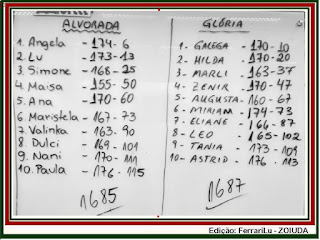 ALVORADA
1. Angela - 174-6
2. Lu - 173-13
3. Simone - 168-25
4. Maisa - 155-50
5. Ana - 170-60
6. Maristela - 167-73
7. Valinka - 163-90
8. Dulci - 169-101
9. Nani - 170-111
10. Paula - 176-115
1685
GLÓRIA
1- GALEGA - 170-10
2- HILDA - 170-20
3- MARLI - 163-37
4- ZENIR - 170-47
5- AUGUSTA - 160-67
6- MIRIAM - 174-73
7- ELIANE - 166-87
8- LEO - 165-102
9- TANIA - 173-109
10- ASTRID - 176-113
1687
Edição: FerrariLu - ZOIUDA